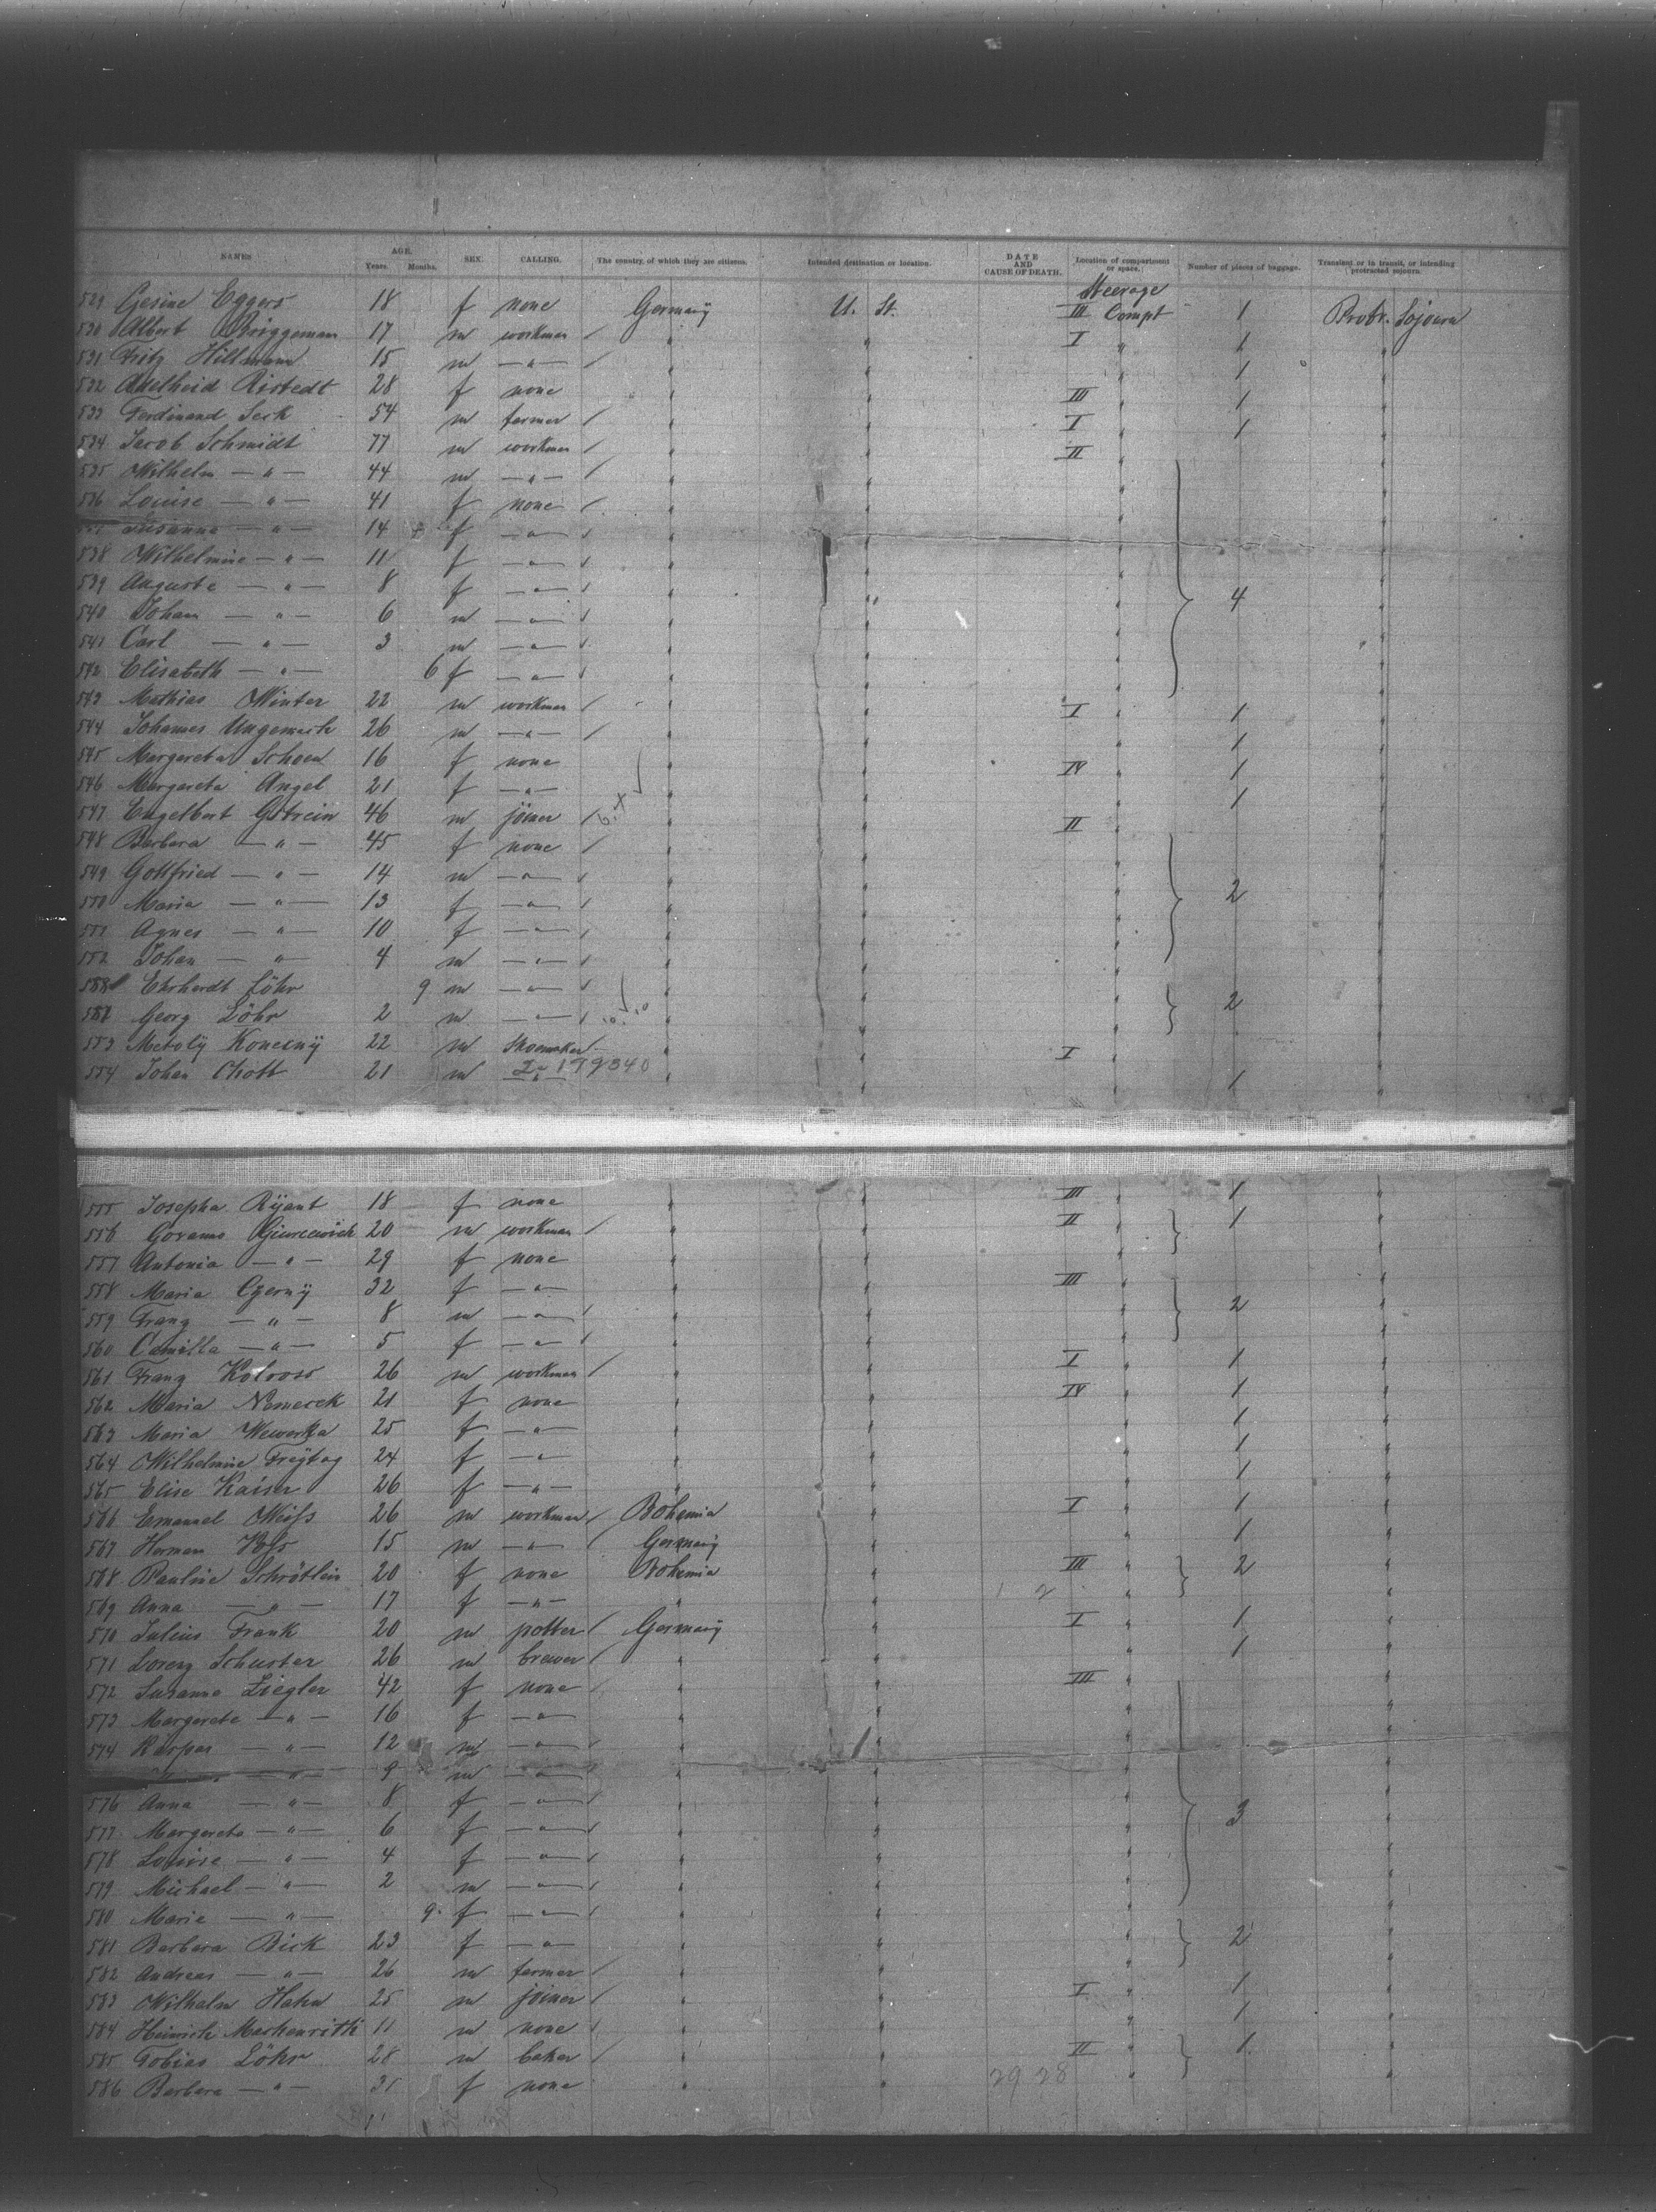 NAMES AGE. Years. Months. SEX. CALLING. The country, of which they are citizens. Intended destination or location. DATE AND CAUSE OF DEATH. Location of compartment or space. Number of pieces of baggage. Transient or in transit, or intending protracted sojourn.
Steerage
529 Gesine Eggers 18 f none Germany U. St. III Compt 1 Protr. Sojourn
530 Albert Brüggeman 17 m workman / " I " 1 "
531 Fritz Hillmann 15 m —"— / " " 1
532 Adelheid Ristedt 28 f none " III " 1
533 Ferdinand Seck 54 m farmer / " I " 1
534 Jacob Schmidt 77 m workman / " II "
535 Wilhelm —"— 44 m —"— /
536 Louise —"— 41 f none /
Susanna —"— 14 f —"—
538 Wilhelmine —"— 11 f —"—
539 Auguste —"— 8 f —"—
540 Johann —"— 6 m —"— 4
541 Carl —"— 3 m —"—
542 Elisabeth —"— 6 f —"—
543 Mathias Winter 22 m workman / I 1
544 Johannes Ungemach 26 m —"— / 1
545 Margareta Schoen 16 f none IV 1
546 Margareta Angel 21 f —"— 1
547 Engelbert Gstrein 46 m joiner / II
548 Barbara —"— 45 f none /
549 Gottfried —"— 14 m —"—
550 Maria —"— 13 f —"— 2
551 Agnes —"— 10 f —"—
552 Johan —"— 4 m —"—
Ehrhardt Löhr 9 m —"—
Georg Löhr 2 m —"— 2
553 Metoly Konecny 22 m shoemaker I
2-199340
554 Johan Chott 21 m —"— 1
555 Josepha Ryant 18 f none III 1
556 20 m workman / II 1
557 Antonia —"— 29 f none
558 Maria Czerny 32 f —"— III
559 Franz —"— 8 m —"— 2
560 Camilla —"— 5 f —"—
561 Franz 26 m workman / I 1
562 Maria Nemecek 21 f none IV 1
563 Maria Wewerka 25 f —"— 1
564 Wilhelmine Freytag 24 f —"— 1
565 Elise Kaiser 26 f —"— 1
566 Emanuel Weiss 26 m workman / Bohemia I 1
567 Herman 15 m —"— / Germany 1
568 Pauline Schrötlein 20 f none Bohemia III 2
569 Anna —"— 17 f —"— "
570 Julius Frank 20 m potter / Germany I 1
571 Lorenz Schuster 26 m brewer / 1
572 Susanna Ziegler 42 f none III
573 Margarete —"— 16 f —"—
574 Kaspar —"— 12 m —"—
—"— 9 m —"—
576 Anna —"— 8 f —"—
577 Margareta —"— 6 f —"— 3
578 Louise —"— 4 f —"—
579 Michael —"— 2 m —"—
580 Marie —"— 9 f —"—
581 Barbara Bick 23 f —"— 2
582 Andreas —"— 26 m farmer /
583 Wilhelm Hahn 25 m joiner / I 1
584 Heinrich 11 m none 1
585 Tobias Löhr 28 m baker / II 1
586 Barbara —"— 31 f none 29 28